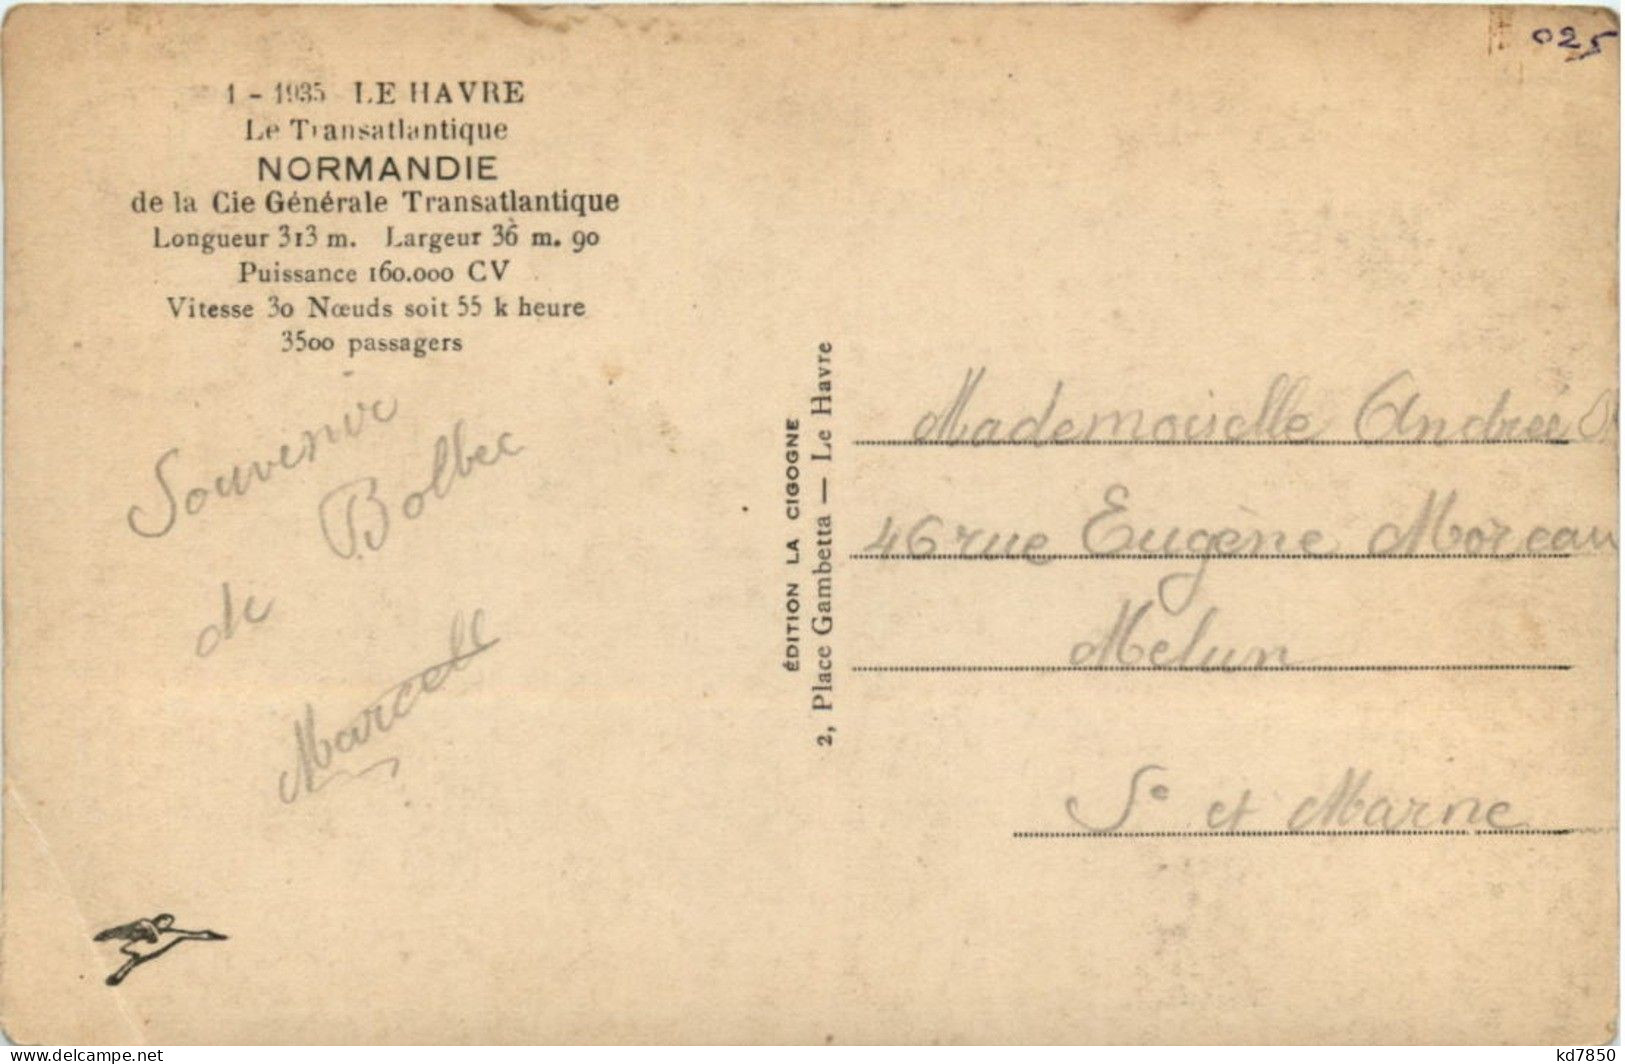 025
1 - 1935 LE HAVRE
Le Transatlantique
NORMANDIE
de la Cie Générale Transatlantique
Longueur 313 m. Largeur 36 m. 90
Puissance 160.000 CV
Vitesse 30 Nœuds soit 55 k heure
3500 passagers
Souvenir
Bolbec
de
Marcell
ÉDITION LA CIGOGNE
2, Place Gambetta — Le Havre
Mademoiselle Andrée
46 rue Eugène Moreau
Melun
Se et Marne
kd7850